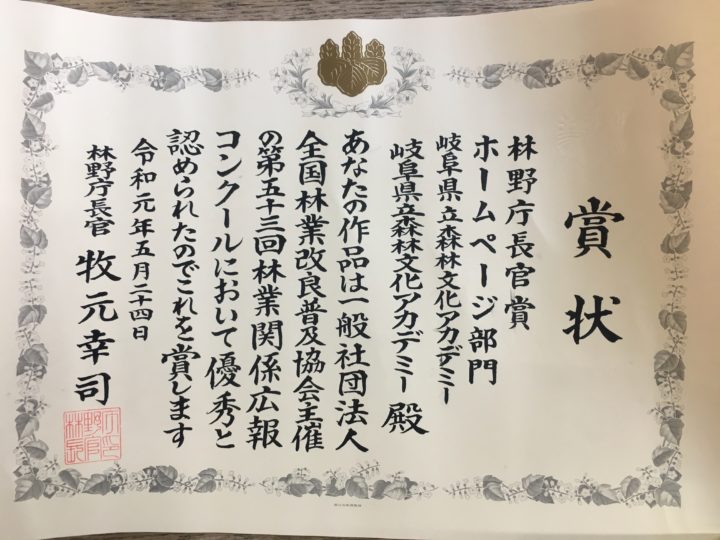 賞状
林野庁長官賞
ホームページ部門
岐阜県立森林文化アカデミー
岐阜県立森林文化アカデミー殿
あなたの作品は一般社団法人
全国林業改良普及協会主催
の第五十三回林業関係広報
コンクールにおいて優秀と
認められたのでこれを賞します
令和元年五月二十四日
林野庁長官 牧元幸司